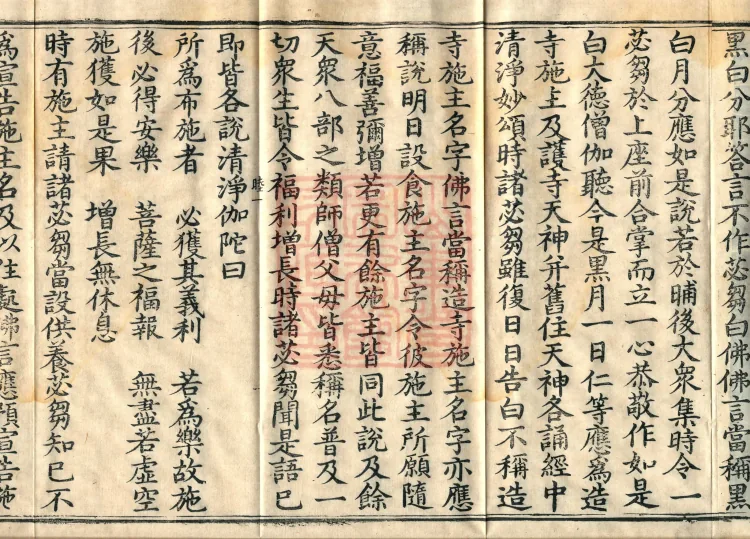 黑白分耶答言不作苾芻白佛佛言當稱黑
白月分應如是說若於晡後大衆集時令一
苾芻於上座前合掌而立一心恭敬作如是
白大德僧伽聽今是黑月一日仁等應爲造
寺施主及護寺天神并舊住天神各誦經中
清淨妙頌時諸苾芻雖復日日告白不稱造
寺施主名字佛言當稱造寺施主名字亦應
稱說明日設食施主名字令彼施主所願隨
意福善彌增若更有餘施主皆同此說及餘
天衆八部之類師僧父母皆悉稱名普及一
切衆生皆令福利增長時諸苾芻聞是語已
即皆各說清淨伽陀曰
所爲布施者 必獲其義利 若爲樂故施
後必得安樂 菩薩之福報 無盡若虛空
施獲如是果 增長無休息
時有施主請諸苾芻當設供養苾芻知已不
爲宣告施主名及以住處佛言應須宣告施